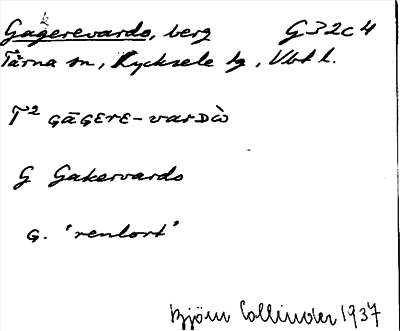 Gagerevardo, berg G32c4
k
Tärna sn, Lycksele lg, Vbt l.
T² GĀGERE-varDÒ
G Gakervardo
G. 'renlort'
Björn Collinder 1937